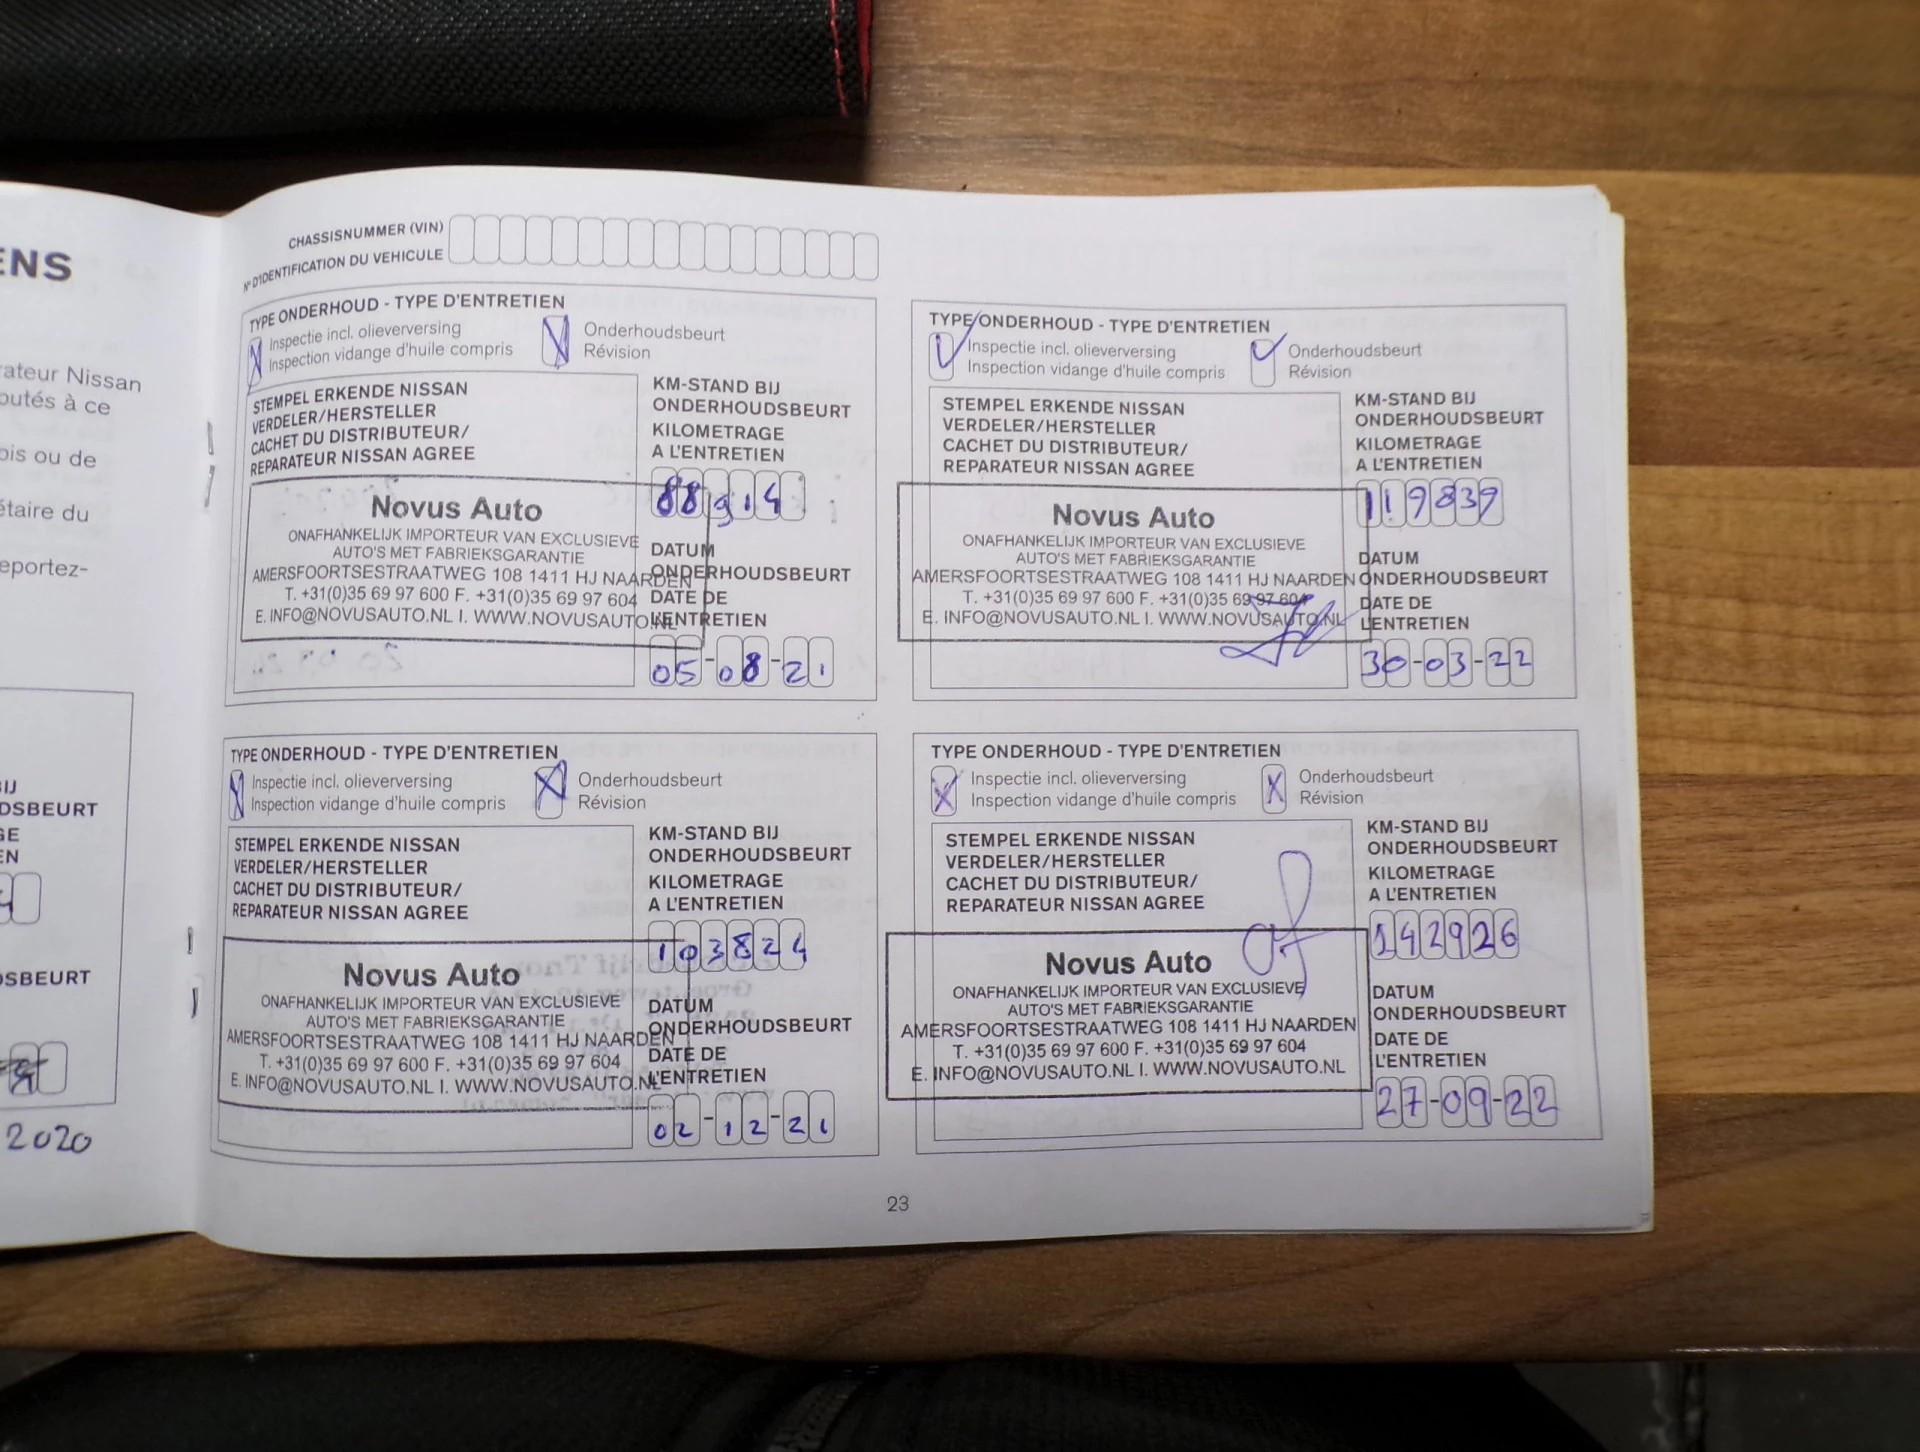 ENS
rateur Nissan
outés à ce
ois ou de
étaire du
eportez-
IJ
DSBEURT
GE
EN
DSBEURT
2020
CHASSISNUMMER (VIN)
N° D'IDENTIFICATION DU VEHICULE
TYPE ONDERHOUD - TYPE D'ENTRETIEN
Inspectie incl. olieverversing
Inspection vidange d'huile compris
Onderhoudsbeurt
Révision
STEMPEL ERKENDE NISSAN
VERDELER/HERSTELLER
CACHET DU DISTRIBUTEUR/
REPARATEUR NISSAN AGREE
KM-STAND BIJ
ONDERHOUDSBEURT
KILOMETRAGE
A L'ENTRETIEN
88914
Novus Auto
ONAFHANKELIJK IMPORTEUR VAN EXCLUSIEVE
AUTO'S MET FABRIEKSGARANTIE
AMERSFOORTSESTRAATWEG 108 1411 HJ NAARDEN
T. +31(0)35 69 97 600 F. +31(0)35 69 97 604
E. INFO@NOVUSAUTO.NL I. WWW.NOVUSAUTO.NL
DATUM
ONDERHOUDSBEURT
DATE DE
L'ENTRETIEN
05-08-21
TYPE ONDERHOUD - TYPE D'ENTRETIEN
Inspectie incl. olieverversing
Inspection vidange d'huile compris
Onderhoudsbeurt
Révision
STEMPEL ERKENDE NISSAN
VERDELER/HERSTELLER
CACHET DU DISTRIBUTEUR/
REPARATEUR NISSAN AGREE
KM-STAND BIJ
ONDERHOUDSBEURT
KILOMETRAGE
A L'ENTRETIEN
119839
Novus Auto
ONAFHANKELIJK IMPORTEUR VAN EXCLUSIEVE
AUTO'S MET FABRIEKSGARANTIE
AMERSFOORTSESTRAATWEG 108 1411 HJ NAARDEN
T. +31(0)35 69 97 600 F. +31(0)35 69 97 604
E. INFO@NOVUSAUTO.NL I. WWW.NOVUSAUTO.NL
DATUM
ONDERHOUDSBEURT
DATE DE
L'ENTRETIEN
30-03-22
TYPE ONDERHOUD - TYPE D'ENTRETIEN
Inspectie incl. olieverversing
Inspection vidange d'huile compris
Onderhoudsbeurt
Révision
STEMPEL ERKENDE NISSAN
VERDELER/HERSTELLER
CACHET DU DISTRIBUTEUR/
REPARATEUR NISSAN AGREE
KM-STAND BIJ
ONDERHOUDSBEURT
KILOMETRAGE
A L'ENTRETIEN
103824
Novus Auto
ONAFHANKELIJK IMPORTEUR VAN EXCLUSIEVE
AUTO'S MET FABRIEKSGARANTIE
AMERSFOORTSESTRAATWEG 108 1411 HJ NAARDEN
T. +31(0)35 69 97 600 F. +31(0)35 69 97 604
E. INFO@NOVUSAUTO.NL I. WWW.NOVUSAUTO.NL
DATUM
ONDERHOUDSBEURT
DATE DE
L'ENTRETIEN
02-12-21
TYPE ONDERHOUD - TYPE D'ENTRETIEN
Inspectie incl. olieverversing
Inspection vidange d'huile compris
Onderhoudsbeurt
Révision
STEMPEL ERKENDE NISSAN
VERDELER/HERSTELLER
CACHET DU DISTRIBUTEUR/
REPARATEUR NISSAN AGREE
KM-STAND BIJ
ONDERHOUDSBEURT
KILOMETRAGE
A L'ENTRETIEN
142926
Novus Auto
ONAFHANKELIJK IMPORTEUR VAN EXCLUSIEVE
AUTO'S MET FABRIEKSGARANTIE
AMERSFOORTSESTRAATWEG 108 1411 HJ NAARDEN
T. +31(0)35 69 97 600 F. +31(0)35 69 97 604
E. INFO@NOVUSAUTO.NL I. WWW.NOVUSAUTO.NL
DATUM
ONDERHOUDSBEURT
DATE DE
L'ENTRETIEN
27-09-22
23